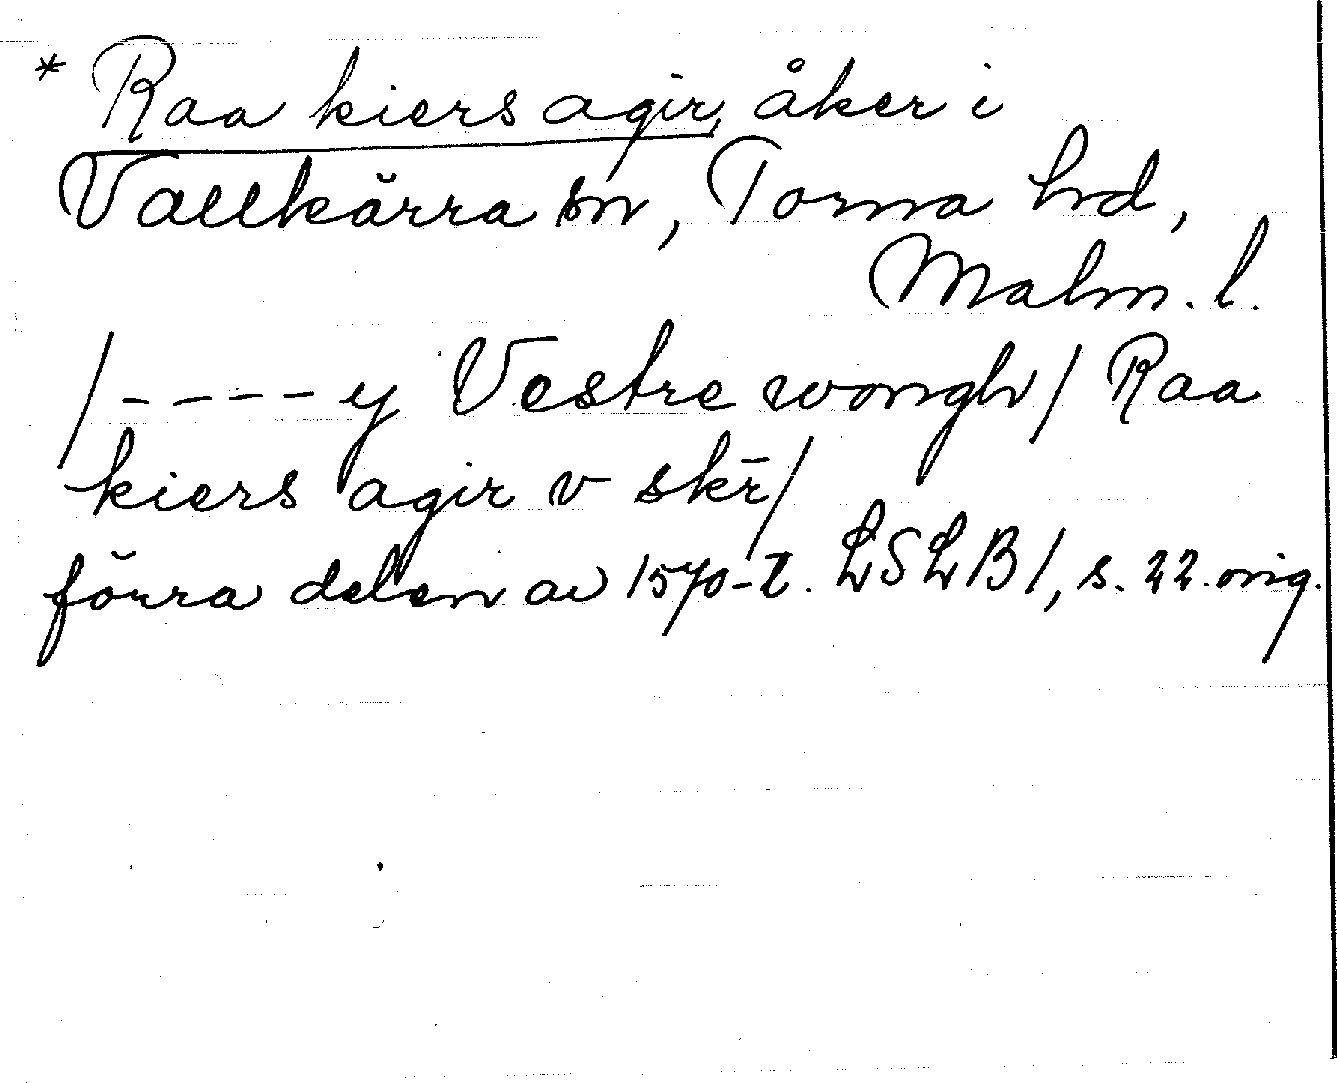 * Raa kiers agir, åker i
Vallkärra sn, Torna hd,
Malm. l.
/ - - - - y Vestre wongh / Raa
kiers agir v skr̄ /
förra delen av 1570-t. LSLB 1, s. 22. orig.